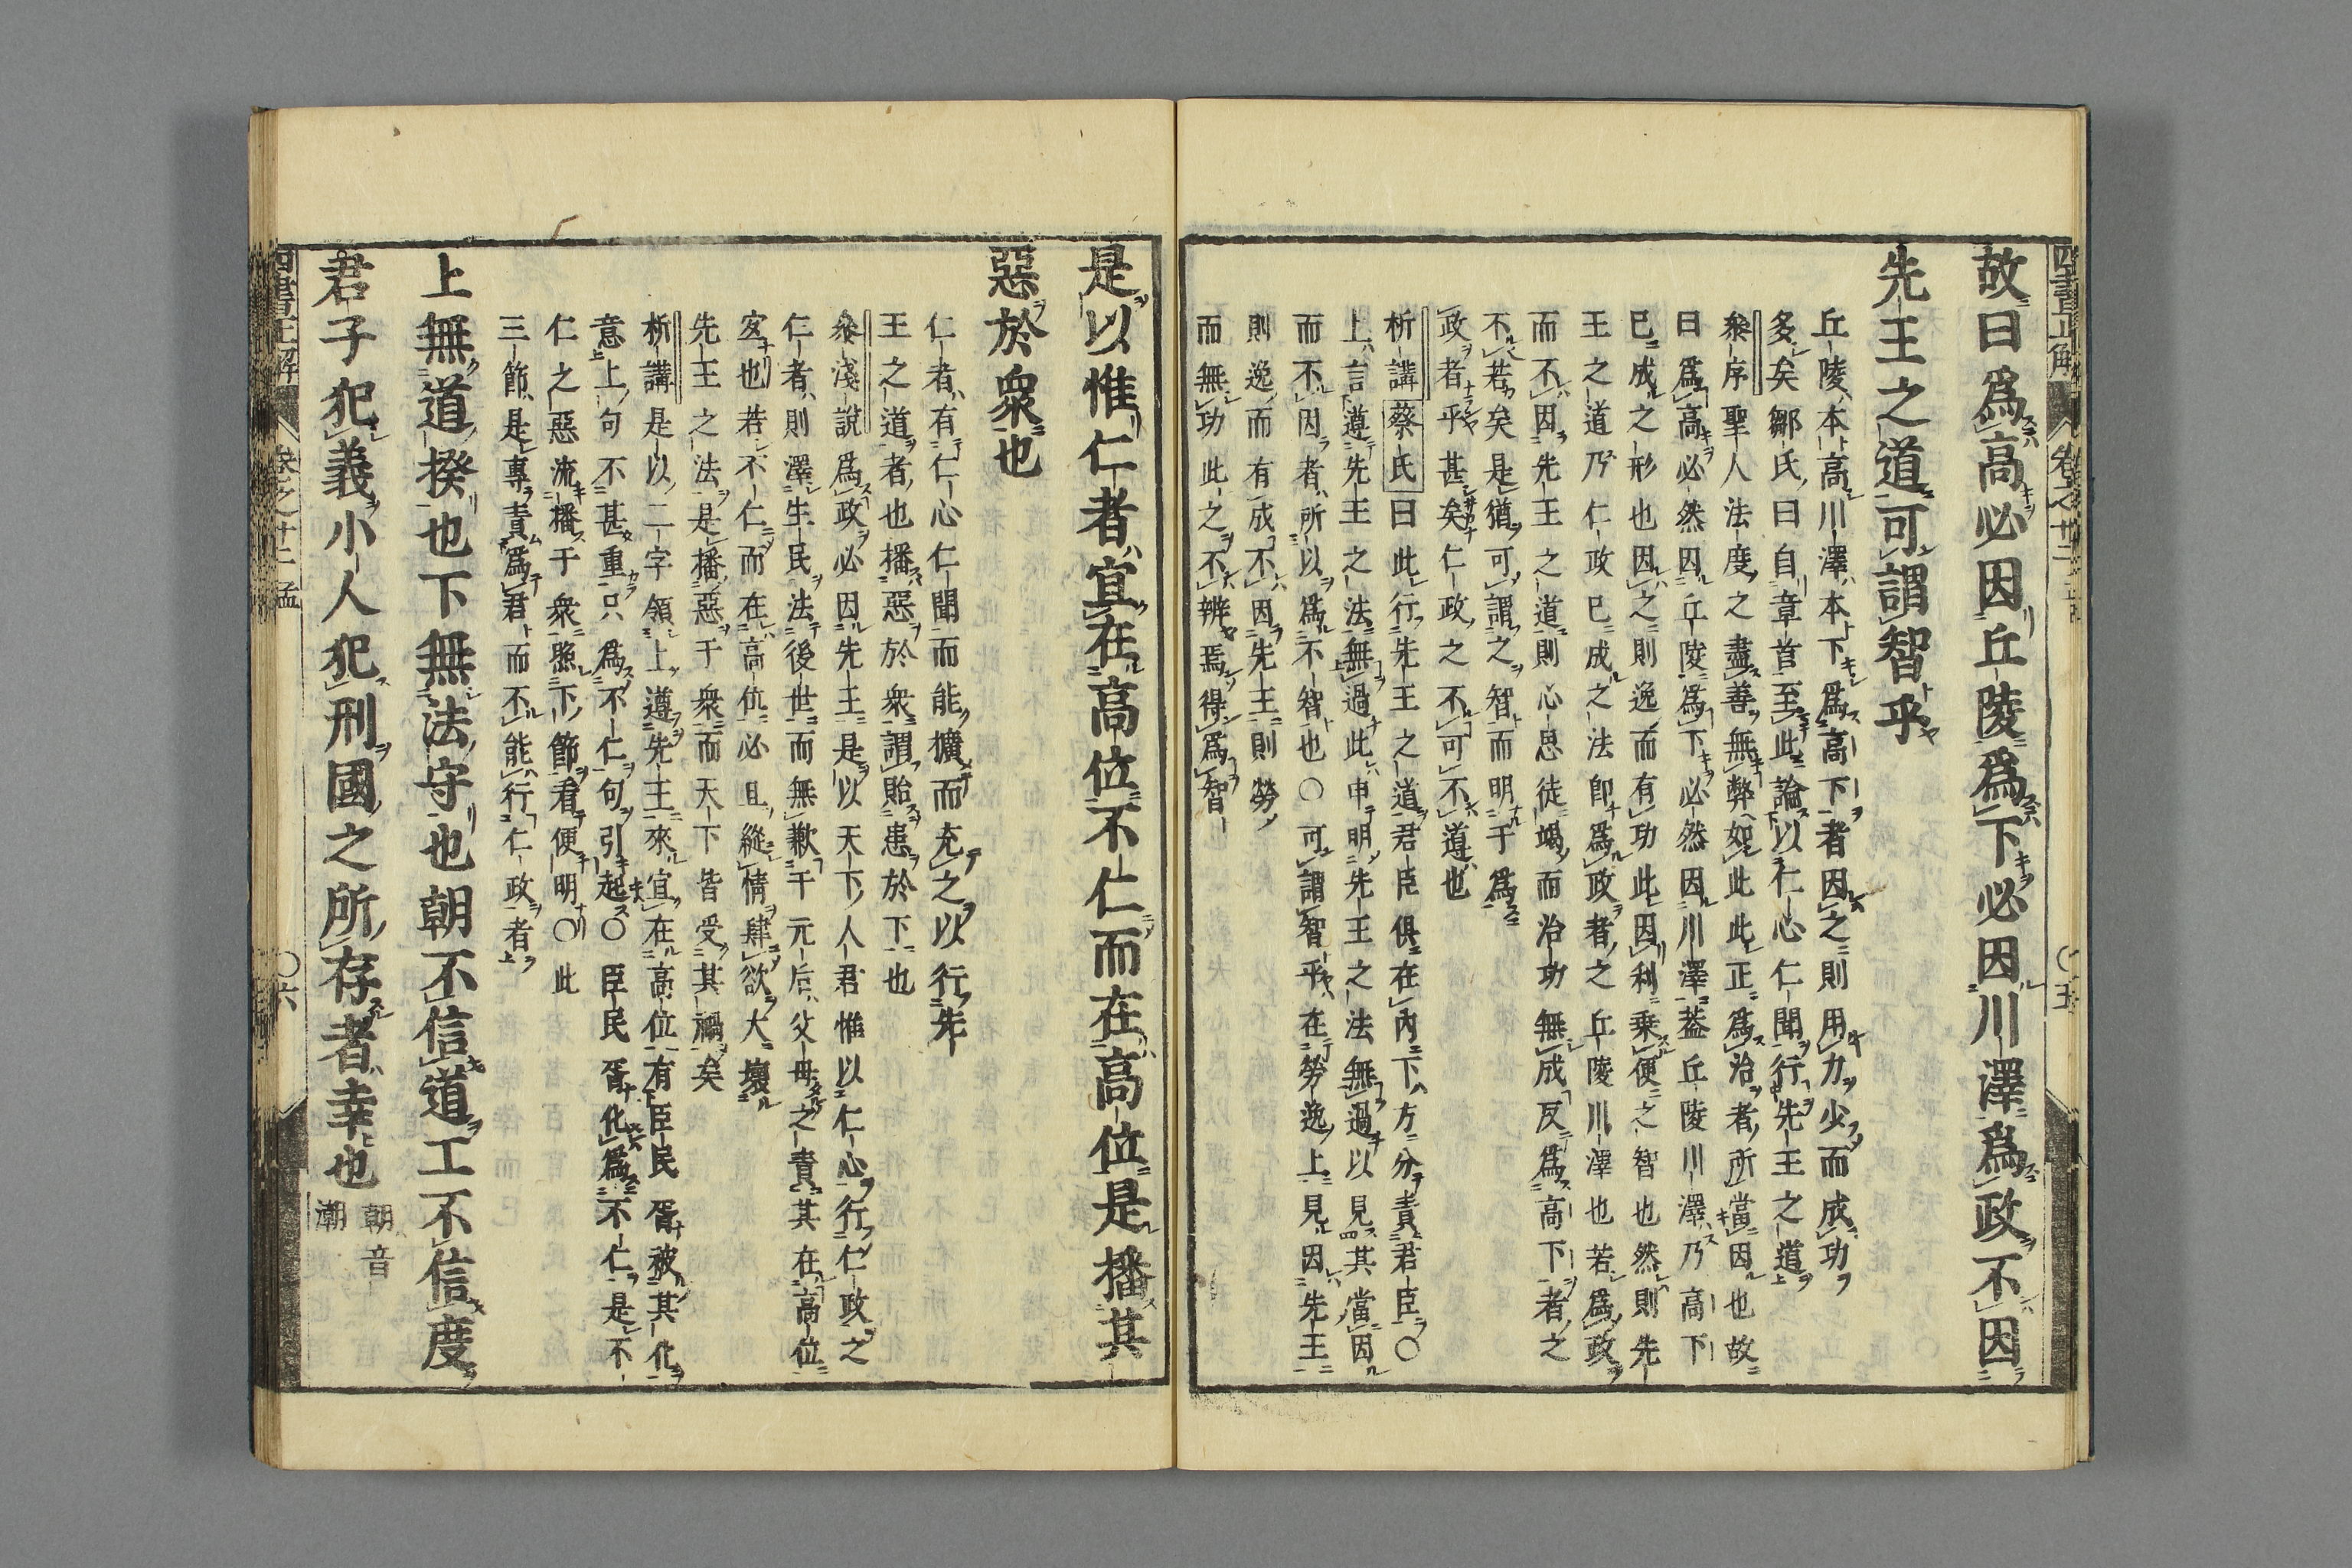 故曰爲高必因丘陵爲下必因川澤爲政不因
先王之道可謂智乎
丘陵本高川澤本下爲高下者因之則用力少而成功
多矣鄒氏曰自章首至此論以仁心仁聞行先王之道
叅序聖人法度之盡善無弊如此此正爲治者所當因也故
曰爲高必然因丘陵爲下必然因川澤葢丘陵川澤乃高下
已成之形也因之則逸而有功此因利乗便之智也然則先
王之道乃仁政已成之法卽爲政者之丘陵川澤也若爲政
而不因先王之道則心思徒竭而治功無成反爲高下者之
不若矣是猶可謂之智而明于爲
政者乎甚矣仁政之不可不遵也
析講蔡氏曰此行先王之道君臣俱在內下方分責君臣〇
上言遵先王之法無過此申明先王之法無過以見其當因
而不因者所以爲不智也〇可謂智乎在勞逸上見因先王
則逸而有成不因先王則勞
而無功此之不辨焉得爲智
是以惟仁者宜在高位不仁而在高位是播其
惡於衆也
仁者有仁心仁聞而能擴而充之以行先
王之道者也播惡於衆謂貽患於下也
叅淺說爲政必因先王是以天下人君惟以仁心行仁政之
仁者則澤生民法後世而無歉于元后父母之責其在高位
宐也若不仁而在高位必且縱情肆欲大壞
先王之法是播惡于衆而天下皆受其禍矣
析講是以二字領上遵先王來宜在高位有臣民胥被其化
意上句不甚重只爲不仁句引起〇臣民胥化爲不仁是不
仁之惡流播于衆照下節看便明〇此
三節是專責爲君而不能行仁政者
上無道揆也下無法守也朝不信道工不信度
君子犯義小人犯刑國之所存者幸也
朝音
潮
四書正解
卷之廿二
〇五
四書正解
卷之廿二 孟
〇六